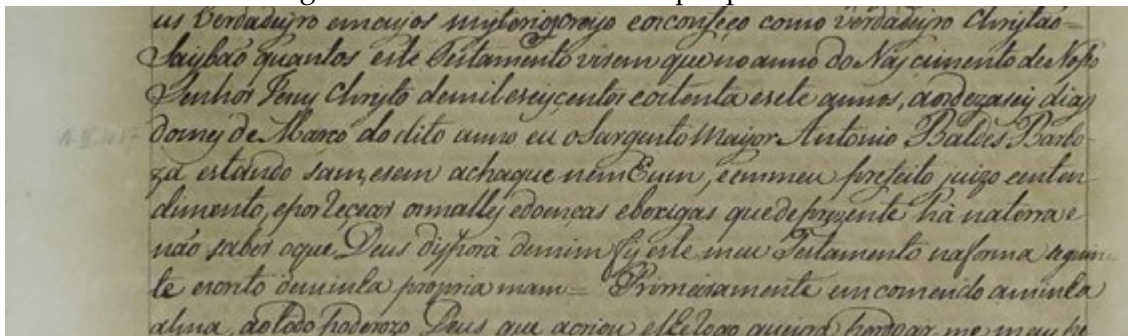 us Verdadeyro em cujos misterios creyo e confeço como Verdadeyro Christão =
Saybaõ quantos este Testamento virem que no anno do Nascimento de Nosso
Senhor Jesus Christo de mil e seyscentos e oitenta e sete annos, aos dezaseis dias
do mes de Março do dito anno eu o Sargento Mayor Antonio Baldes Barbo-
za estando sam, e sem achaque nem hum, e em meu prefeito juizo e enten-
dimento, e por reçear os malles e doenças e bexigas que de prezente há na terra e
não saber o que Deus disporá de mim fis este meu Testamento na forma seguin
te escrito de minha propria mam = Primeiramente emcomendo a minha
alma, ao todo poderozo Deus que a criou e lhe rogo queira perdoar me meus